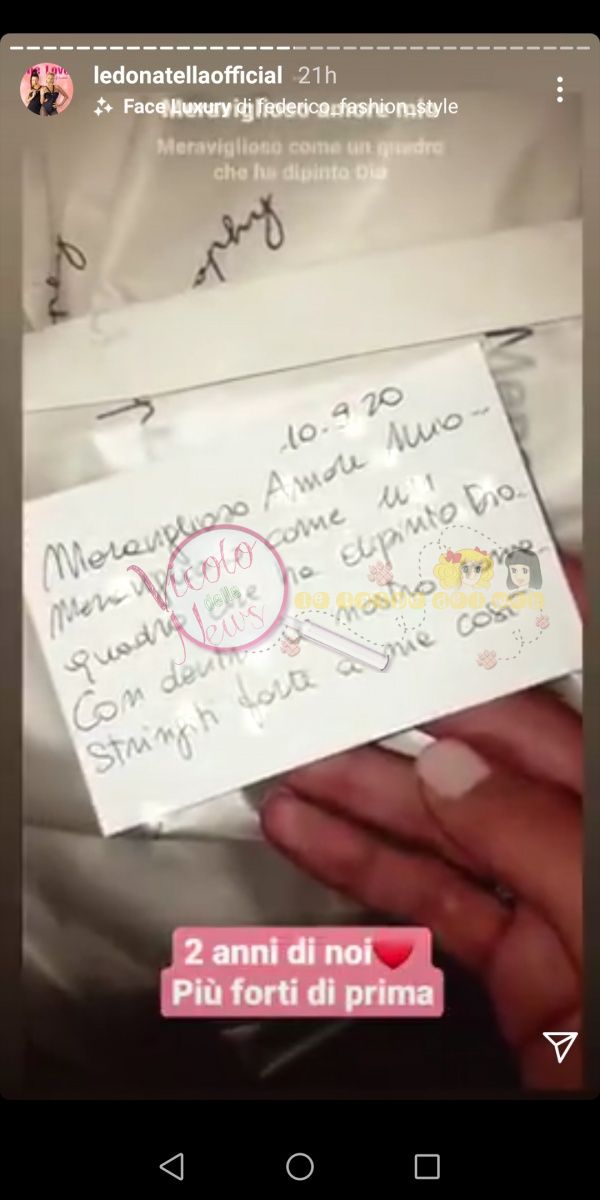 ledonatellaofficial 21h
Face Luxury di federico_fashion_style
Meraviglioso amore mio
Meraviglioso come un quadro
che ha dipinto Dio
ophy
10.9.20
Meraviglioso Amore Mio
come un
quadro che ha dipinto Dio..
Con dentro il nostro
Stringiti forte a me così
Vicolo
delle
News
2 anni di noi❤
Più forti di prima